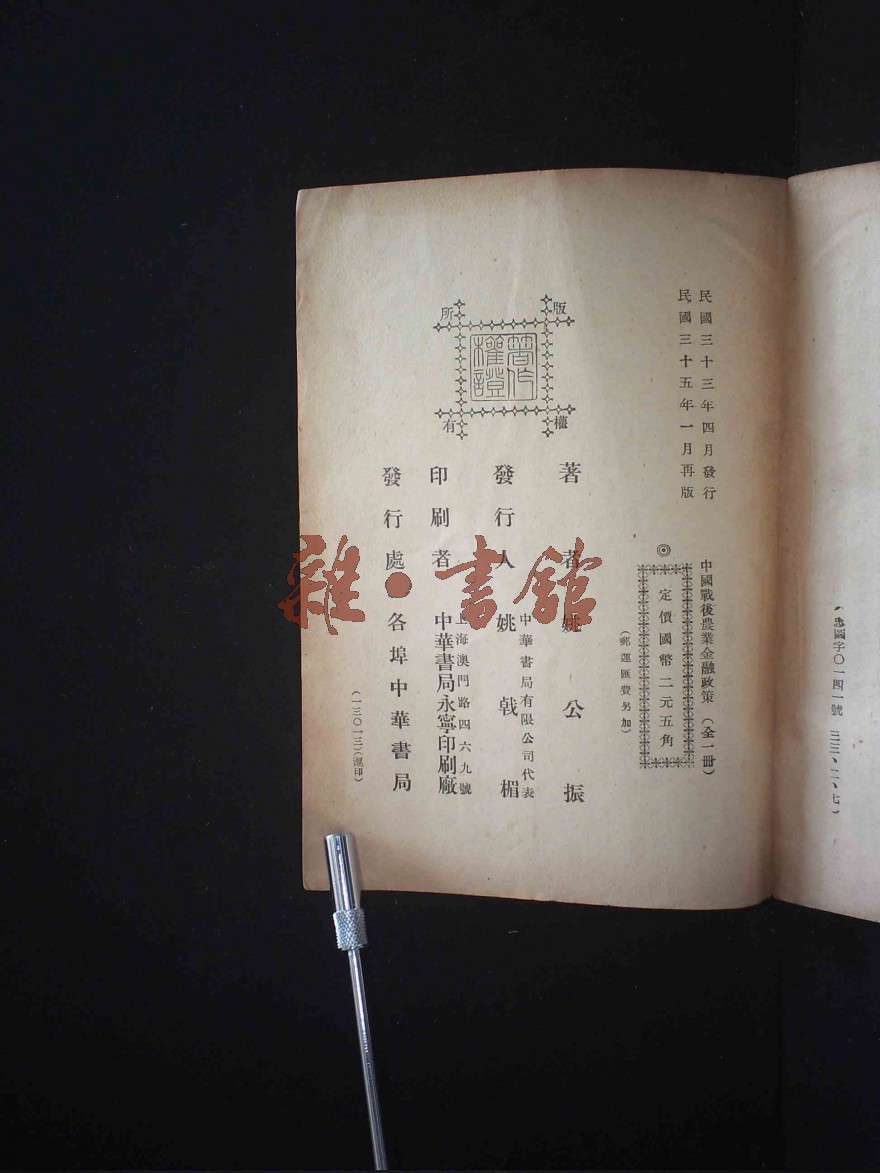 忠圖字〇一四一號　三三、二、七
民國三十三年四月發行
民國三十五年一月再版
中國戰後農業金融政策（全一冊）
◎定價國幣二元五角
（郵運匯費另加）
著者　姚公振
發行人　中華書局有限公司代表
姚戟楣
印刷者　上海澳門路四六九號
中華書局永寧印刷廠
發行處　各埠中華書局
（一三〇一三）（滬印）
版權所有
著作權證
雜·書館